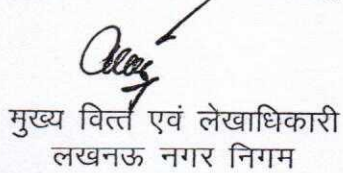 मुख्य वित्त एवं लेखाधिकारी
लखनऊ नगर निगम